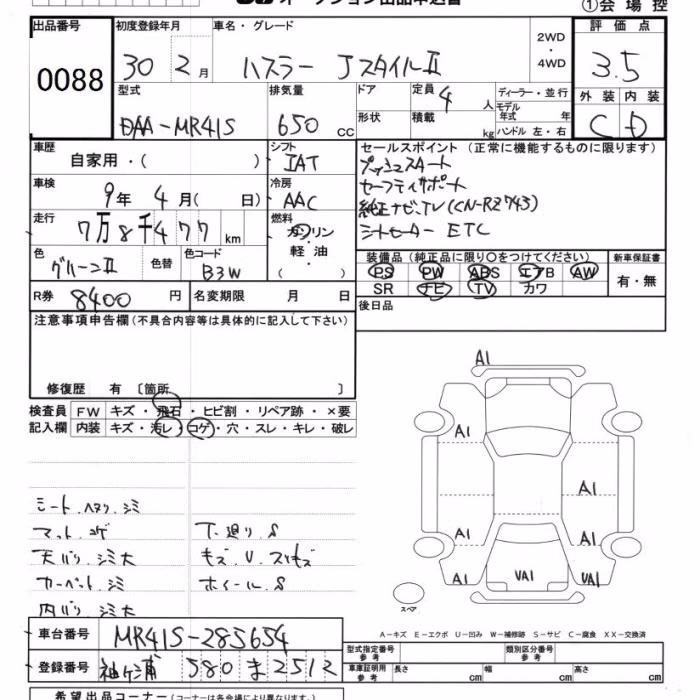 ①会場控
出品番号 初度登録年月 車名・グレード 評価点
0088
30 2月 ハスラー JスタイルⅡ 2WD・4WD 3.5
型式 排気量 ドア 定員 4人 ディーラー・並行 外装 内装
DAA-MR41S 650cc 形状 積載 kg モデル年式 年 ハンドル 左・右 C D
車歴 シフト セールスポイント (正常に機能するものに限ります)
自家用・( ) IAT プッシュスタート
車検 冷房 セーフティサポート
9年 4月( 日) AAC 純正ナビ.TV(CN-RZ743)
走行 燃料 シートヒーター ETC
7万8千477km ガソリン
軽油
( )
色 グリーンⅡ 色替 色コード B3W
装備品 (純正品に限り○をつけてください) 新車保証書
PS PW ABS エアB AW 有・無
SR ナビ TV カワ
R券 8400円 名変期限 月 日 後日品
注意事項申告欄(不具合内容等は具体的に記入して下さい)
修復歴 有 〔箇所 〕
検査員 FW キズ・飛石・ヒビ割・リペア跡・×要
記入欄 内装 キズ・汚レ・コゲ・穴・スレ・キレ・破レ
A1
A1
A1
A1
A1
A1 UA1 UA1
スペア
シート.ヘタリ.シミ
マット.コゲ 下廻り.S
天バリ.シミ大 キズ.U.スリキズ
カーペット.シミ ホイール.S
内バリ.シミ大
A-キズ E-エクボ U-凹み W-補修跡 S-サビ C-腐食 XX-交換済
車台番号 MR41S-285654
登録番号 袖ケ浦 580 ま 2512
型式指定番号 参考 類別区分番号 参考
車庫証明用 参考 長さ cm 幅 cm 高さ cm
希望出品コーナー(コーナーは各会場により異なります)